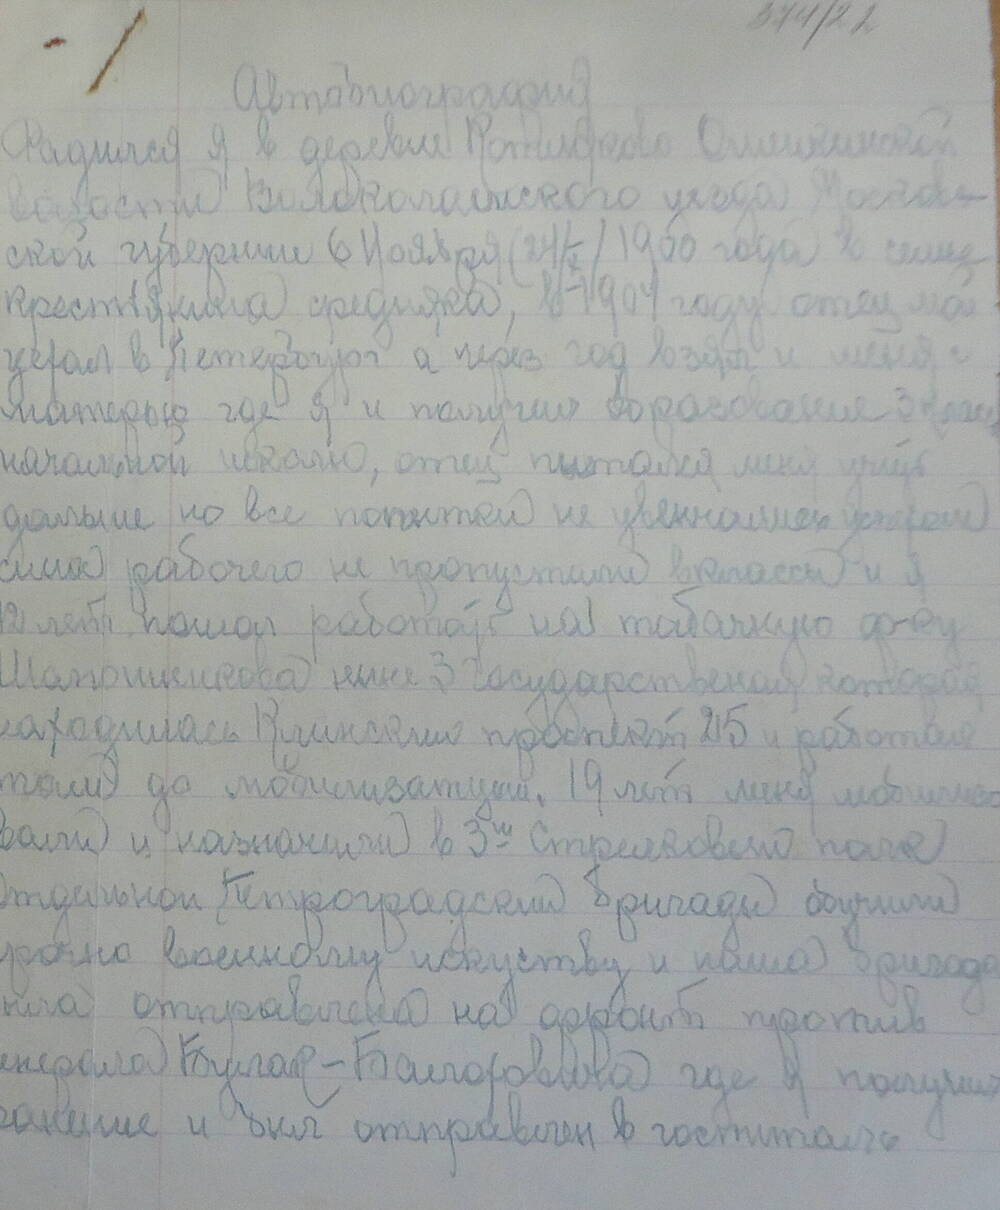 374/22
Автобиография
Радился я в деревне Оляниской
волости Волоколамского уезда Москов-
ской губернии 6 Ноября (24/X / 1900 года в семье
крестьянина средняка, в 1904 году отец мой
уехал в Петербург а через год взял и меня с
матерью где я и получил оброзование 3 клас
начальной школы, отец пытался меня учить
дальше но все попытки не увенчались успехом
сына рабочего не пропустили в классы и я
12 лет пошол работать на табачную ф-ку
Шапошникова ныне 3 Государственая которая
находилась Клинский проспект 25 и работал
там до мобилизатции. 19 лет меня мобилизо
вали и назначили в 3й Стрелковый полк
Отдельной Петроградский Бригады обучили
срочно военному искуству и наша бригада
была отправлена на фронт против
енерала Булак-Балаховича где я получил
ранение и был отправлен в госпиталь